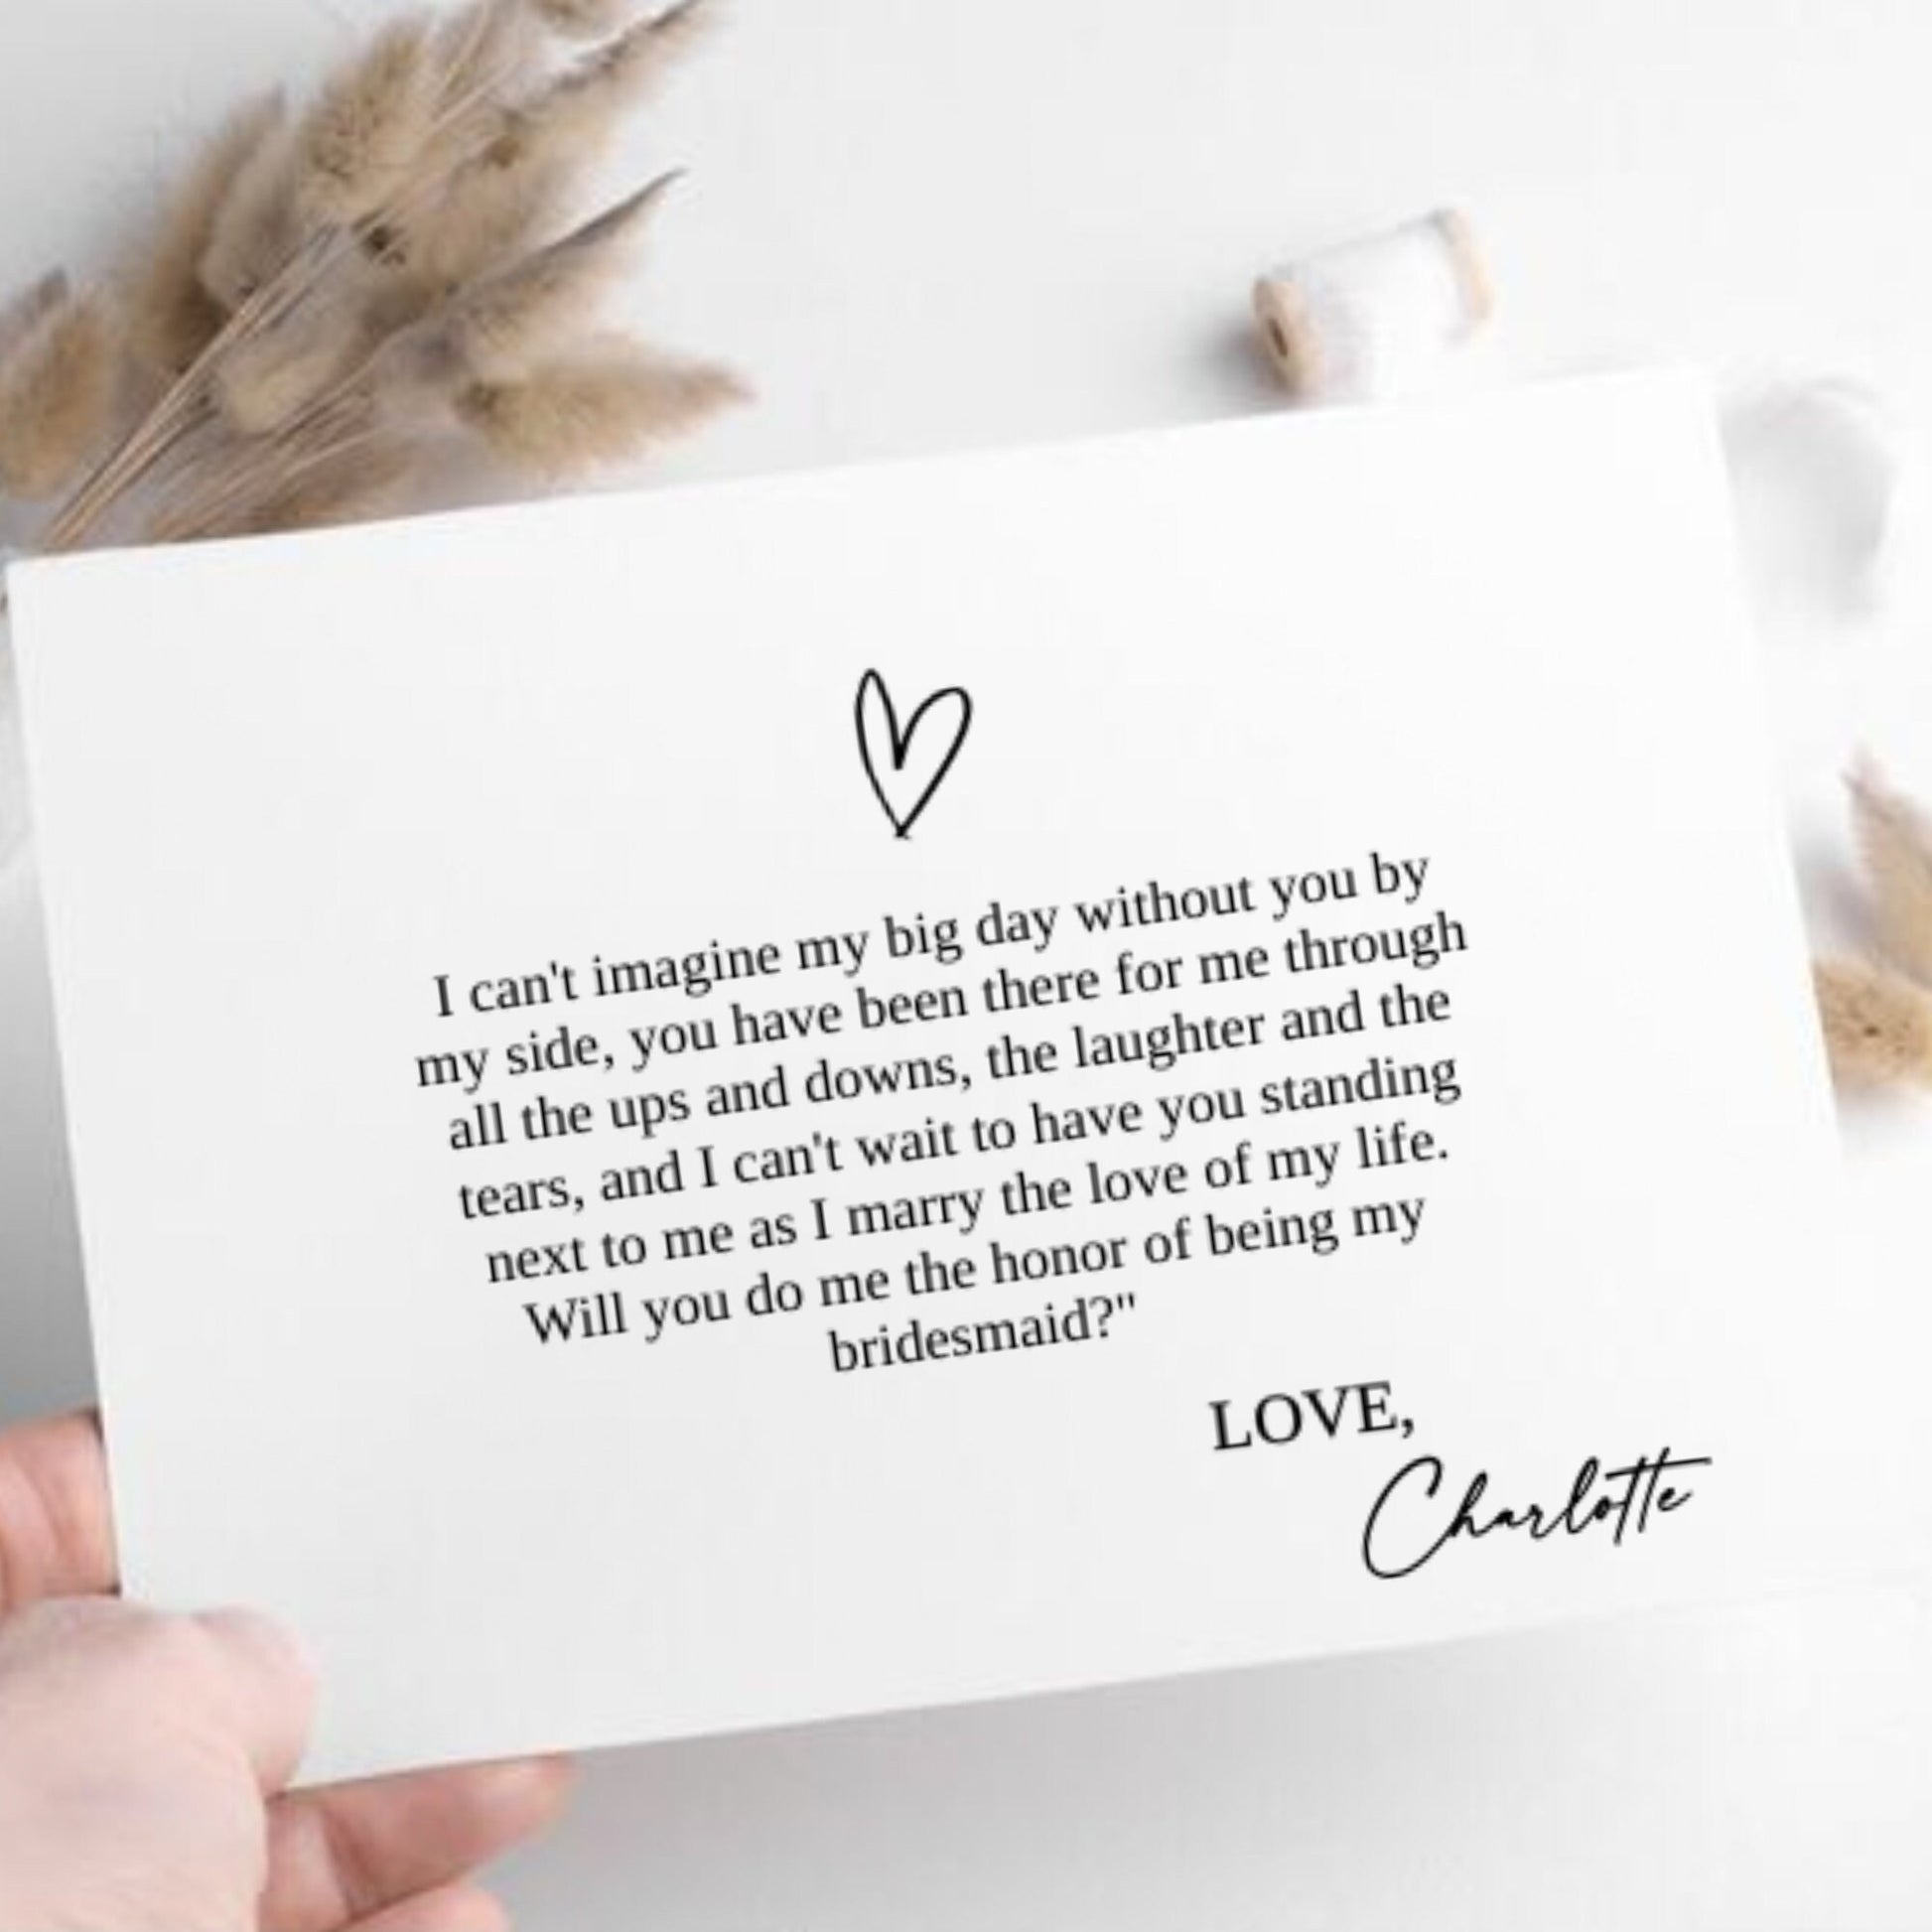 I can't imagine my big day without you by
my side, you have been there for me through
all the ups and downs, the laughter and the
tears, and I can't wait to have you standing
next to me as I marry the love of my life.
Will you do me the honor of being my
bridesmaid?"
LOVE,
Charlotte